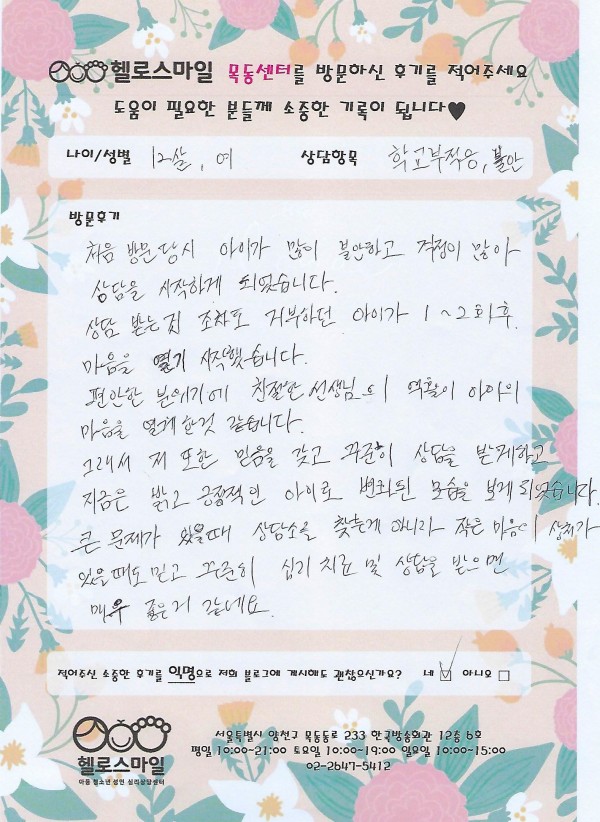 헬로스마일 목동센터를 방문하신 후기를 적어주세요
도움이 필요한 분들께 소중한 기록이 됩니다♥
나이/성별 12살, 여 상담항목 학교부적응, 불안
방문후기
처음 방문당시 아이가 많이 불안하고 걱정이 많아
상담을 시작하게 되었습니다.
상담 받는것 조차도 거부하던 아이가 1~2회후
마음을 열기 시작했습니다.
편안한 분위기에 친절한 선생님의 역활이 아이의
마음을 열게한것 같습니다.
그래서 저 또한 믿음을 갖고 꾸준히 상담을 받게하고
지금은 밝고 긍정적인 아이로 변화된 모습을 보게 되었습니다.
큰 문제가 있을때 상담소를 찾는게 아니라 작은 마음의 상처가
있을때도 믿고 꾸준히 심리 치료 및 상담을 받으면
매우 좋은거 같네요.
적어주신 소중한 후기를 익명으로 저희 블로그에 게시해도 괜찮으신가요? 네 ☑ 아니오 □
헬로스마일
아동 청소년 성인 심리상담센터
서울특별시 양천구 목동동로 233 한국방송회관 12층 6호
평일 10:00-21:00 토요일 10:00-19:00 일요일 10:00-15:00
02-2647-5412